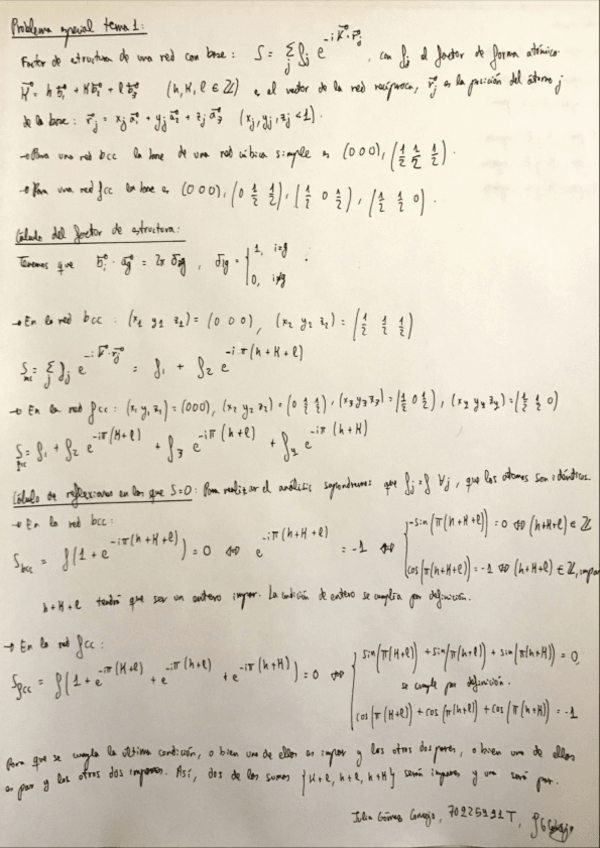 Problema especial tema 1:
Factor de estructura de una red con base: S = Σ_j f_j e^{-i K⃗·r⃗_j}, con f_j el factor de forma atómico.
K⃗ = h b⃗_1 + K b⃗_2 + l b⃗_3 (h, K, l ∈ ℤ) es el vector de la red recíproca, r⃗_j es la posición del átomo j
de la base: r⃗_j = x_j a⃗_1 + y_j a⃗_2 + z_j a⃗_3 (x_j, y_j, z_j < 1).
→ Para una red bcc la base de una red cúbica simple es (0 0 0), (1/2 1/2 1/2).
→ Para una red fcc la base es (0 0 0), (0 1/2 1/2), (1/2 0 1/2), (1/2 1/2 0).
Cálculo del factor de estructura:
Tenemos que b⃗_i · a⃗_j = 2π δ_ij, δ_ij = { 1, i=j
0, i≠j
→ En la red bcc: (x_1 y_1 z_1) = (0 0 0), (x_2 y_2 z_2) = (1/2 1/2 1/2)
S_bcc = Σ_j f_j e^{-i K⃗·r⃗_j} = f_1 + f_2 e^{-iπ(h+K+l)}
→ En la red fcc: (x_1 y_1 z_1) = (000), (x_2 y_2 z_2) = (0 1/2 1/2), (x_3 y_3 z_3) = (1/2 0 1/2), (x_4 y_4 z_4) = (1/2 1/2 0)
S_fcc = f_1 + f_2 e^{-iπ(K+l)} + f_3 e^{-iπ(h+l)} + f_4 e^{-iπ(h+K)}
Cálculo de reflexiones en los que S=0: Para realizar el análisis supondremos que f_j = f ∀j, que los átomos son idénticos.
→ En la red bcc:
S_bcc = f(1 + e^{-iπ(h+K+l)}) = 0 ⇔ e^{-iπ(h+K+l)} = -1 ⇔ { -sin(π(h+K+l)) = 0 ⇔ (h+K+l) ∈ ℤ
cos(π(h+K+l)) = -1 ⇔ (h+K+l) ∈ ℤ, impar
h+K+l tendrá que ser un entero impar. La condición de entero se cumplía por definición.
→ En la red fcc:
S_fcc = f(1 + e^{-iπ(K+l)} + e^{-iπ(h+l)} + e^{-iπ(h+K)}) = 0 ⇔ { sin(π(K+l)) + sin(π(h+l)) + sin(π(h+K)) = 0,
se cumple por definición.
cos(π(K+l)) + cos(π(h+l)) + cos(π(h+K)) = -1
Para que se cumpla la última condición, o bien uno de ellos es impar y los otros dos pares, o bien uno de ellos
es par y los otros dos impares. Así, dos de las sumas {K+l, h+l, h+K} serán impares y una será par.
Julia Gómez